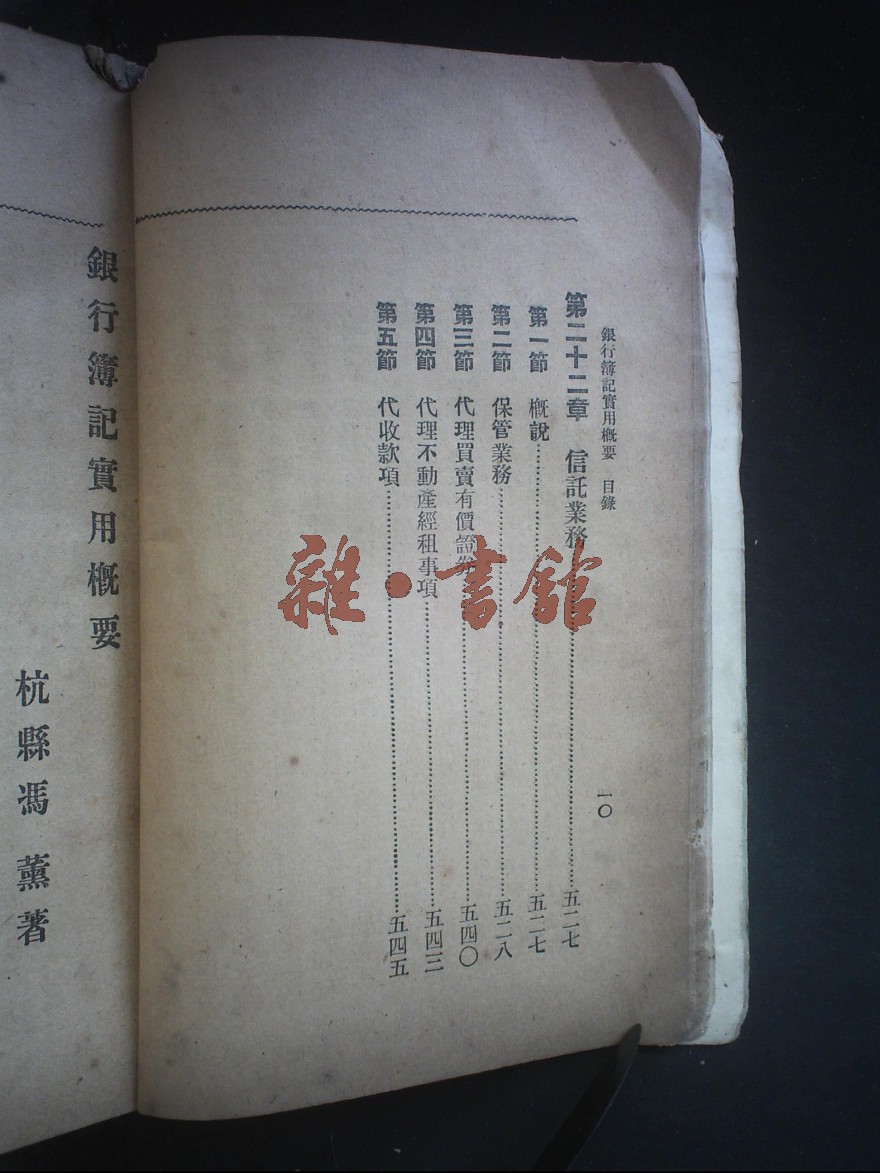 銀行簿記實用概要　目錄
一〇
第二十二章　信託業務…………五二七
第一節　概說…………五二七
第二節　保管業務…………五二八
第三節　代理買賣有價證券…………五四〇
第四節　代理不動產經租事項…………五四三
第五節　代收款項…………五四五
銀行簿記實用概要
杭縣馮　薰著
雜・書館